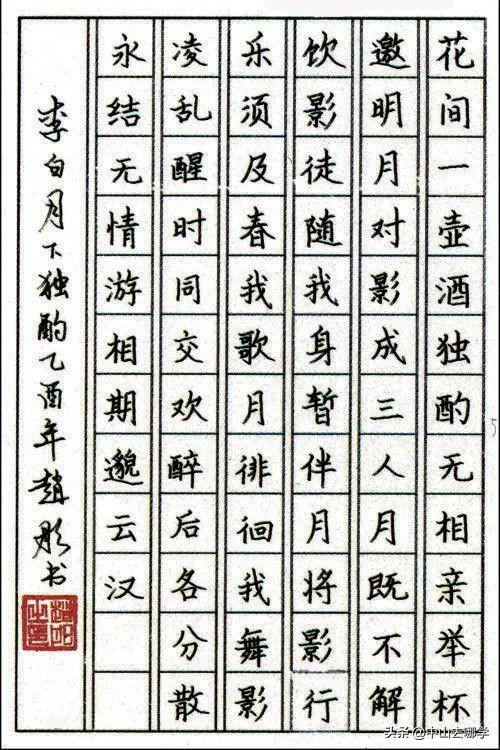 花间一壶酒独酌无相亲举杯
邀明月对影成三人月既不解
饮影徒随我身暂伴月将影行
乐须及春我歌月徘徊我舞影
凌乱醒时同交欢醉后各分散
永结无情游相期邈云汉
李白月下独酌乙酉年趙彤书
头条 @中山去哪学